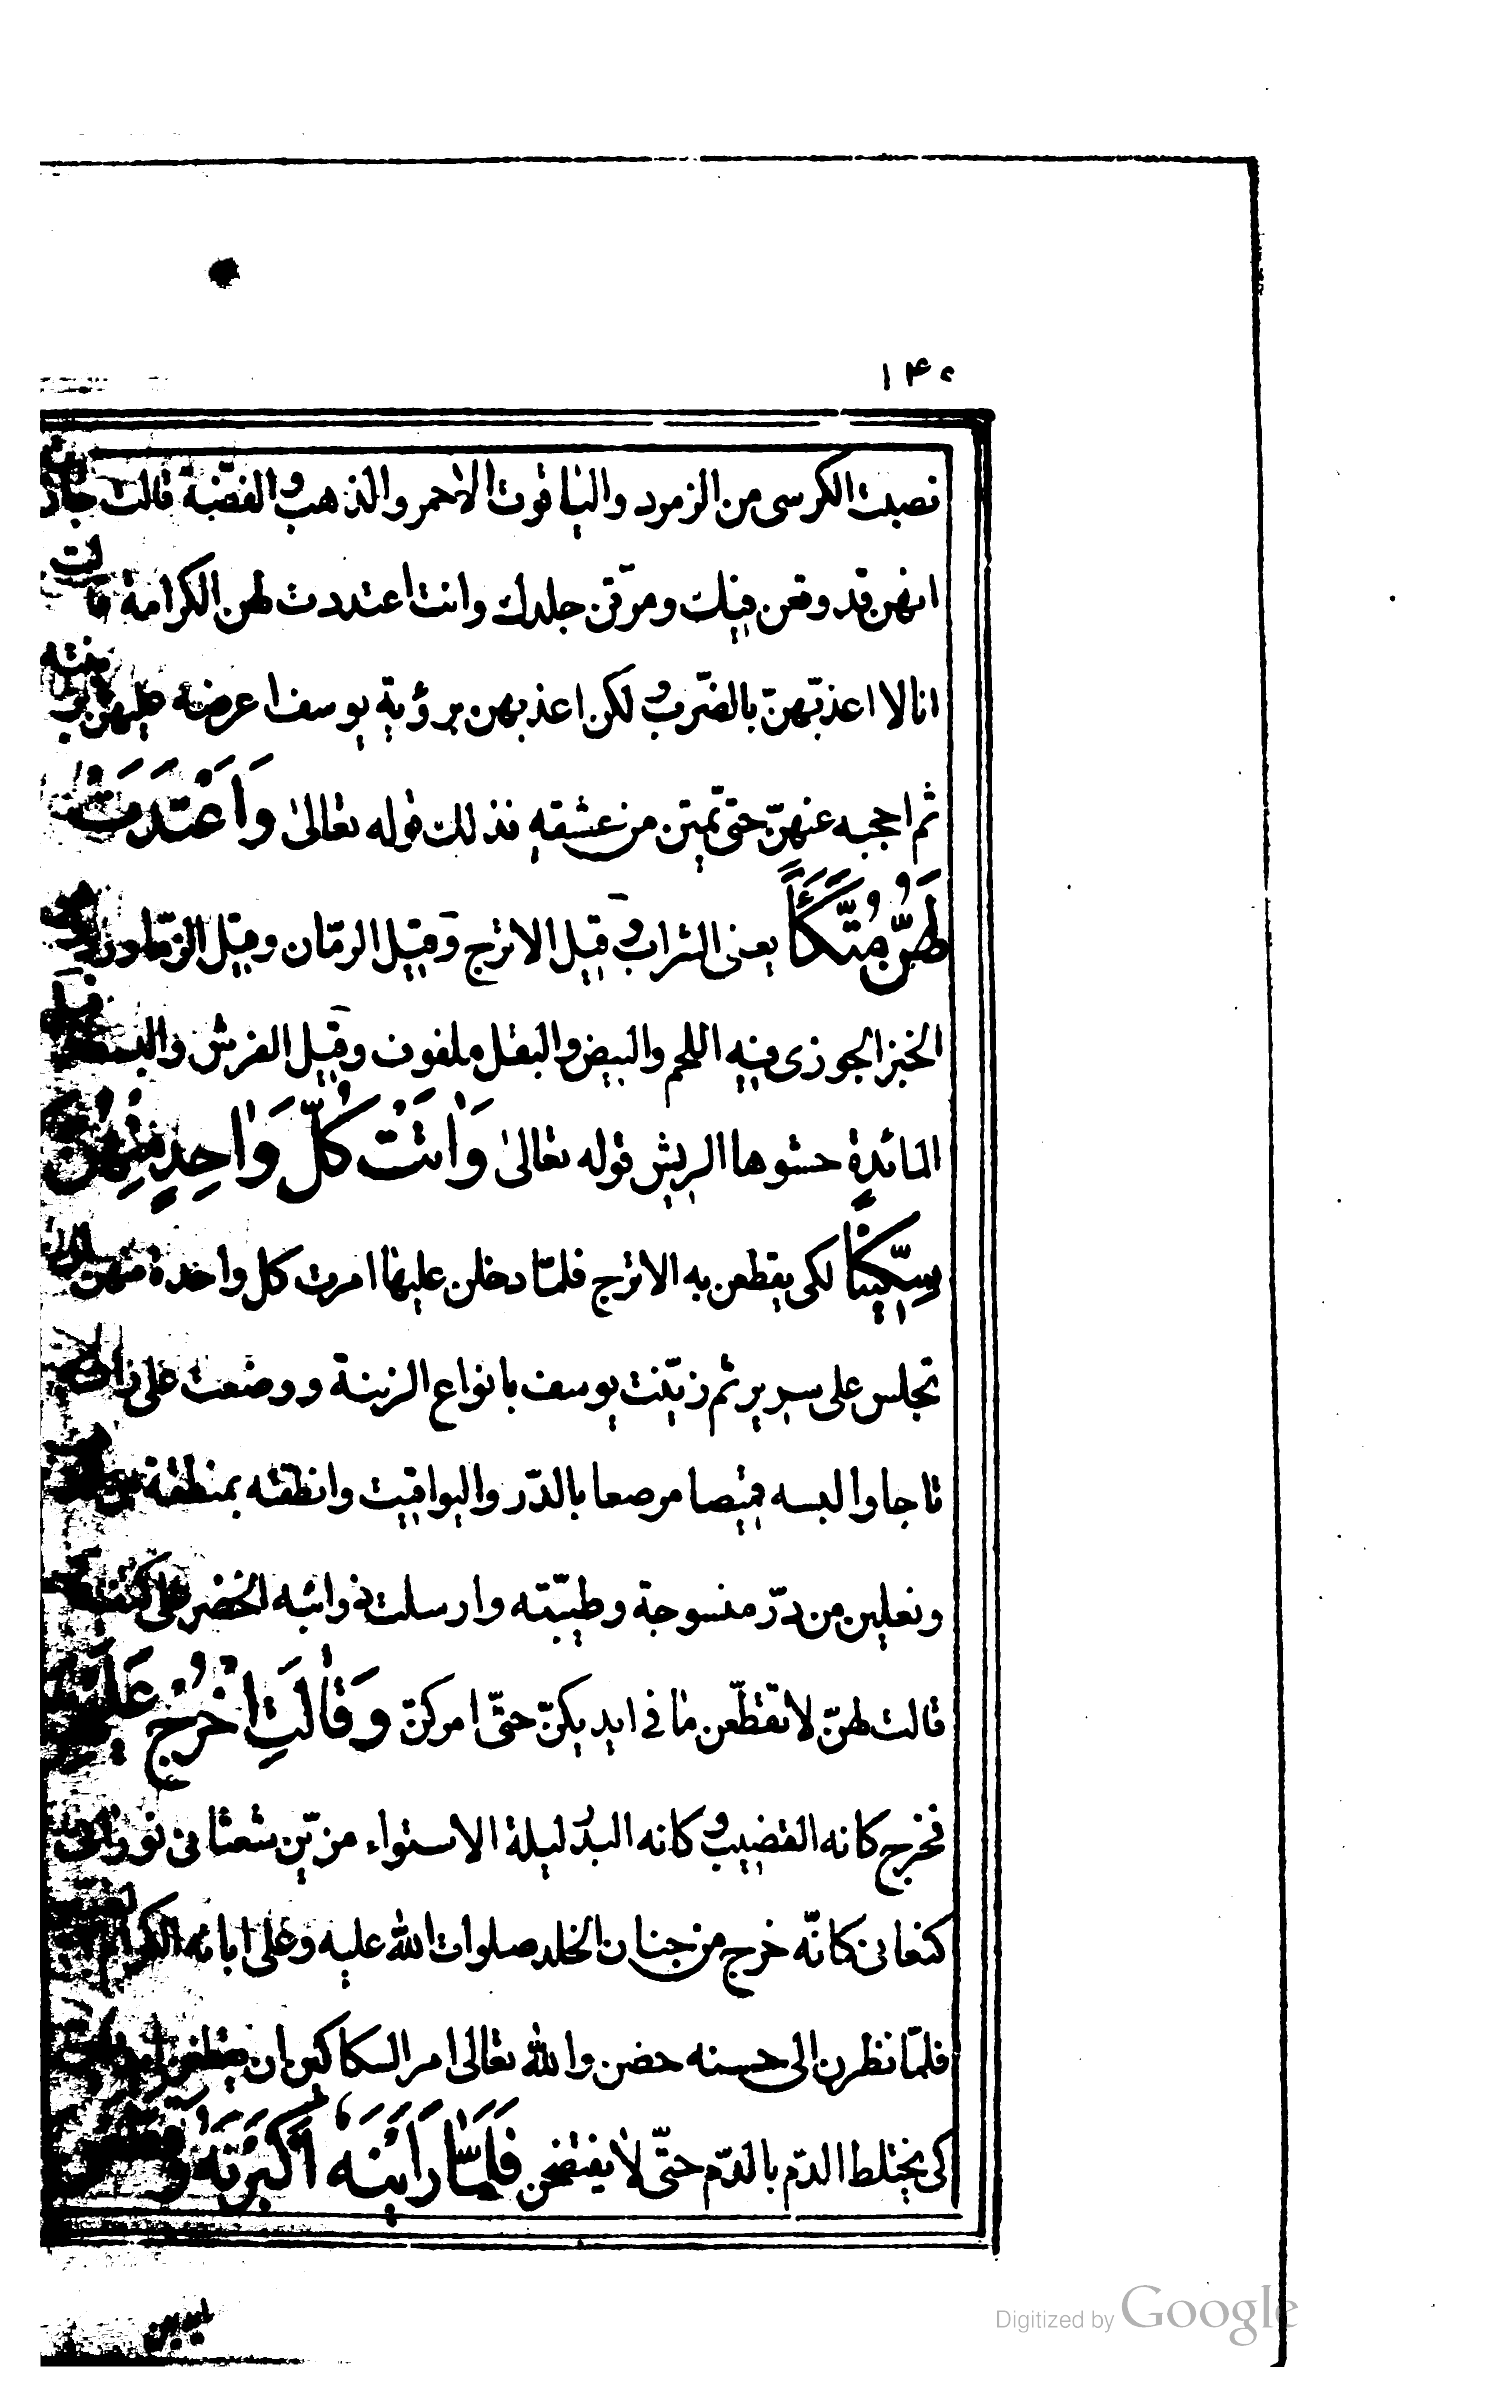 ١٤٠
نصبت الكرسى من الزمرد والياقوت الاحمر والذهب و الفضّة قالت
انهن قد وقعن فيك ومزّقن جلدك وانت اعتددت لهن الكرامة قالت
انا لا اعذبّهنّ بالضّرب و لكن اعذبهن برؤية يوسف اعرضه عليهن
ثم احجبه عنهنّ حتى تميتن من عشقه فذلك قوله تعالىٰ وَاَعْتَدَتْ
لَهُنَّ مُتَّكَأً يعنى الشراب و قيل الاترج وقيل الرمّان وقيل
الخبز الجوزى فيه اللحم والبيض والبقل ملفوف وقيل الفرش و
المائدة حشوها الريش قوله تعالىٰ وَاٰتَتْ كُلَّ وَاحِدٍ مِنْهُنَّ
سِكِّينًا لكى يقطعن به الاترج فلمّا دخلن عليها امرت كل واحدة منهن ان
تجلس على سرير ثم زيّنت يوسف بانواع الزينة ووضعت على
تاجا والبسه قميصا مرصعا بالدّر واليواقيت وانطقته بمنطقة من
ونعلين من درّ منسوجة وطيّبته وارسلت ذوائبه الخضر على
قالت لهنّ لا تقطّعن ما فى ايديكنّ حتّى امركنّ وَقَالَتِ اخْرُجْ عَلَيْهِنَّ
فخرج كانه القضيب و كانه البدر ليلة الاستواء مزيّن شعثا فى نور
كنعانى كانّه خرج من جنان الخلد صلوات الله عليه وعلى ابائه الكرام
فلمّا نظرن الى حسنه حضن والله تعالى امر السكاكين ان يقطعن
كى يختلط الدّم بالدّم حتّى لا يفتضحن فَلَمَّا رَاَيْنَهُ اَكْبَرْنَهُ وَقَطَّعْنَ
ايديهن
Digitized by Google